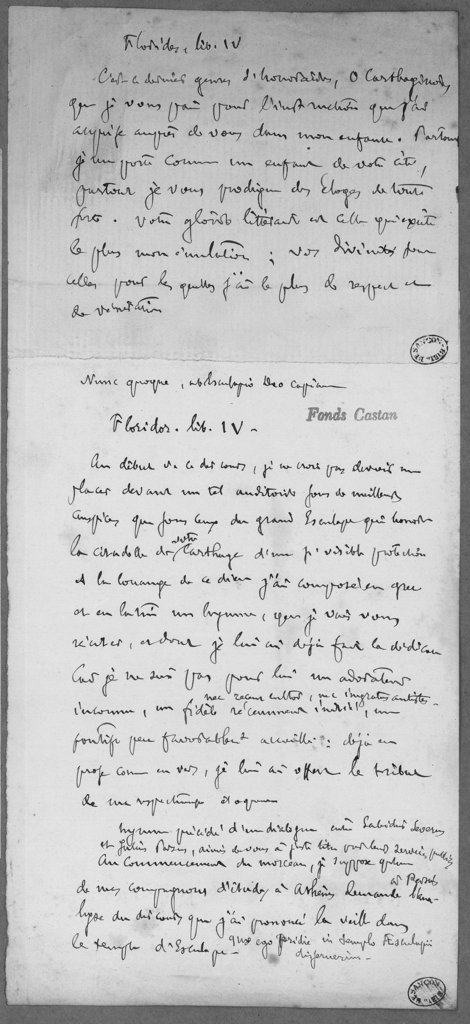 Florides, lib. IV
C'est ce dernier genre d'honoraires, O Carthaginois,
que je vous paie pour l'instruction que j'ai
acquise auprès de vous dans mon enfance. Partout
je me porte comme un enfant de votre cité,
partout je vous prodigue des éloges de toute
sorte. Votre gloire littéraire est celle qui excite
le plus mon émulation ; vos divinités sont
celles pour lesquelles j'ai le plus de respect et
de vénération
BESANÇON BIBL. DE
Nunc quoque, ab Aesculapio Deo capiam
Fonds Castan
Floridor. lib. IV -
Au début de ce discours, je ne crois pas devoir me
placer devant un tel auditoire sous de meilleurs
auspices que sous ceux du grand Esculape qui honore
la citadelle de votre Carthage d'une si visible protection
A la louange de ce dieu j'ai composé en grec
et en latin un hymne, que je vais vous
réciter, et dont je lui ai déjà fait la dédicace
Car je ne suis pas pour lui un adorateur
nec recens cultor, nec ingratus antistes -
inconnu, un fidèle récemment initié, un
pontife peu favorablement accueilli : déjà en
prose comme en vers, je lui ai offert le tribut
de ma respectueuse éloquence
hymne précédé d'un dialogue entre Sabidius Severus
et Julius Persius, aimés de vous à juste titre pour leurs services publics
Au commencement du morceau, je suppose qu'un
de mes compagnons d'études à Athènes demande
à Persius
l'analyse du discours que j'ai prononcé la veille dans
le temple d'Esculape - quae ego pridie in templo Aesculapii
disseruerim -
BESANÇON BIBL. DE